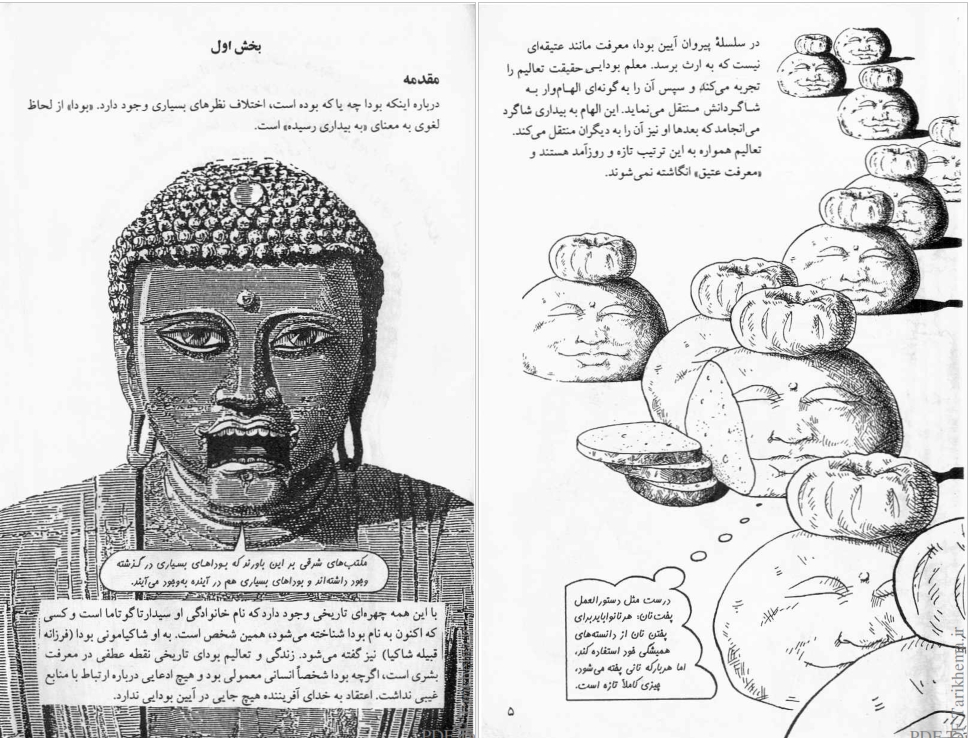 بخش اول
مقدمه
درباره اینکه بودا چه یا که بوده است، اختلاف نظرهای بسیاری وجود دارد. «بودا» از لحاظ
لغوی به معنای «به بیداری رسیده» است.
مکتب‌های شرقی بر این باورند که بوداهای بسیاری در گذشته
وجود داشته‌اند و بوداهای بسیاری هم در آینده به‌وجود می‌آیند.
با این همه چهره‌ای تاریخی وجود دارد که نام خانوادگی او سیدارتا گوتاما است و کسی
که اکنون به نام بودا شناخته می‌شود، همین شخص است. به او شاکیامونی بودا (فرزانه
قبیله شاکیا) نیز گفته می‌شود. زندگی و تعالیم بودای تاریخی نقطه عطفی در معرفت
بشری است، اگرچه بودا شخصاً انسانی معمولی بود و هیچ ادعایی درباره ارتباط با منابع
غیبی نداشت. اعتقاد به خدای آفریننده هیچ جایی در آیین بودایی ندارد.
در سلسلهٔ پیروان آیین بودا، معرفت مانند عتیقه‌ای
نیست که به ارث برسد. معلم بودایی حقیقت تعالیم را
تجربه می‌کند و سپس آن را به گونه‌ای الهام‌وار به
شاگردانش منتقل می‌نماید. این الهام به بیداری شاگرد
می‌انجامد که بعدها او نیز آن را به دیگران منتقل می‌کند.
تعالیم همواره به این ترتیب تازه و روزآمد هستند و
«معرفت عتیق» انگاشته نمی‌شوند.
درست مثل دستورالعمل
پخت نان: هر نانوا باید برای
پختن نان از دانسته‌های
همیشگی خود استفاده کند،
اما هر بار که نانی پخته می‌شود،
چیزی کاملاً تازه است.
۵